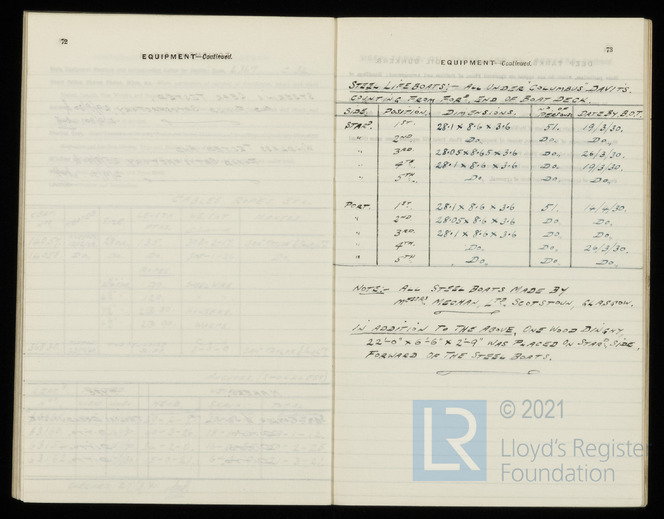 72
EQUIPMENT—Continued.
73
EQUIPMENT—Continued.
STEEL LIFE BOATS:- ALL UNDER COLUMBUS DAVITS.
COUNTING FROM FORD. END OF BOAT DECK.
SIDE. POSITION. DIMENSIONS. NO. OF PERSONS DATE BY B.O.T.
STARD. 1ST. 28.1 x 8.6 x 3.6 51. 19/3/30.
" 2ND. DO. DO. DO.
" 3RD. 28.05 x 8.65 x 3.6 DO. 26/3/30.
" 4TH. 28.1 x 8.6 x 3.6 DO. 19/3/30.
" 5TH. DO. DO. DO.
PORT. 1ST. 28.1 x 8.6 x 3.6 51. 14/4/30.
" 2ND. 28.05 x 8.6 x 3.6 DO. DO.
" 3RD. 28.1 x 8.6 x 3.6 DO. DO.
" 4TH. DO. DO. 26/3/30.
" 5TH. DO. DO. DO.
NOTE:- ALL STEEL BOATS MADE BY
MESSRS. MECHAN, LTD. SCOTSTOUN, GLASGOW.
IN ADDITION TO THE ABOVE, ONE WOOD DINGHY
22'-0" x 6'-6" x 2'-9" WAS PLACED ON STARD. SIDE,
FORWARD OF THE STEEL BOATS.
LR
© 2021
Lloyd's Register
Foundation